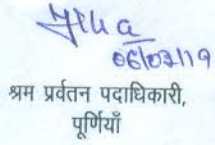 06/02/19
श्रम प्रर्वतन पदाधिकारी,
पूर्णियाँ